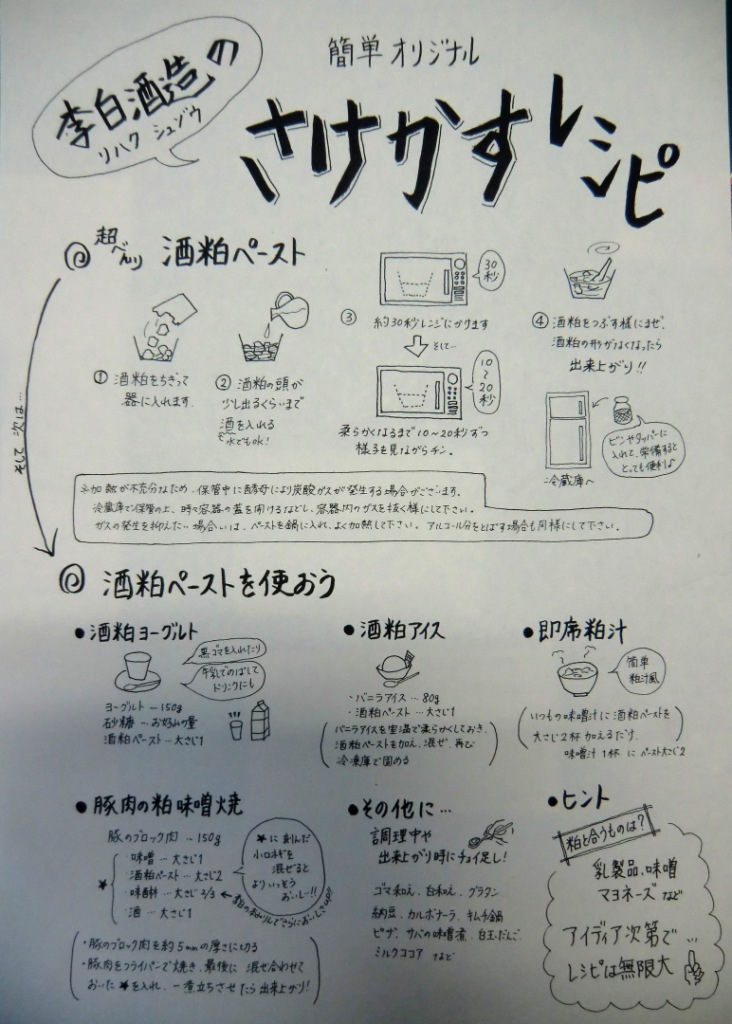 李白酒造の
リハク シュゾウ
簡単 オリジナル
さけかすレシピ
超べんり 酒粕ペースト
① 酒粕をちぎって
器に入れます。
② 酒粕の頭が
少し出るくらいまで
酒を入れる
水でもok!
③ 約30秒レンジにかけます
30秒
そして…
10～20秒
柔らかくなるまで10～20秒ずつ
様子を見ながらチン。
④ 酒粕をつぶす様にまぜ、
酒粕の形がなくなったら
出来上がり!!
ビンやタッパーに
入れて、常備すると
とっても便利♪
冷蔵庫へ
※加熱が不充分なため、保管中に酵母により炭酸ガスが発生する場合がございます。
冷蔵庫で保管の上、時々容器の蓋を開けるなどし、容器内のガスを抜く様にして下さい。
ガスの発生を抑えたい場合は、ペーストを鍋に入れ、よく加熱して下さい。アルコール分をとばす場合も同様にして下さい。
そして次は…
酒粕ペーストを使おう
●酒粕ヨーグルト
黒ゴマを入れたり
牛乳でのばして
ドリンクにも
ヨーグルト…150g
砂糖…お好みの量
酒粕ペースト…大さじ1
●酒粕アイス
・バニラアイス…80g
・酒粕ペースト…大さじ1
バニラアイスを室温で柔らかくしておき、
酒粕ペーストを加え、混ぜ、再び
冷凍庫で固める
●即席粕汁
簡単
粕汁風
いつもの味噌汁に酒粕ペーストを
大さじ2杯加えるだけ。
味噌汁1杯にペースト大さじ2
●豚肉の粕味噌焼
豚のブロック肉…150g
★
・味噌…大さじ1
・酒粕ペースト…大さじ2
・味醂…大さじ2/3
・酒…大さじ1
★に刻んだ
小ネギを
混ぜると
よりいっそう
おいしー!!
・豚のブロック肉を約5mmの厚さに切る
・豚肉をフライパンで焼き、最後に混ぜ合わせて
おいた★を入れ、一煮立ちさせたら出来上がり!
●その他に…
調理中や
出来上がり時にチョイ足し!
ゴマ和え、白和え、グラタン
納豆、カルボナーラ、キムチ鍋
ピザ、サバの味噌煮、白玉だんご、
ミルクココア など
●ヒント
粕と合うものは?
乳製品、味噌
マヨネーズなど
アイディア次第で…
レシピは無限大